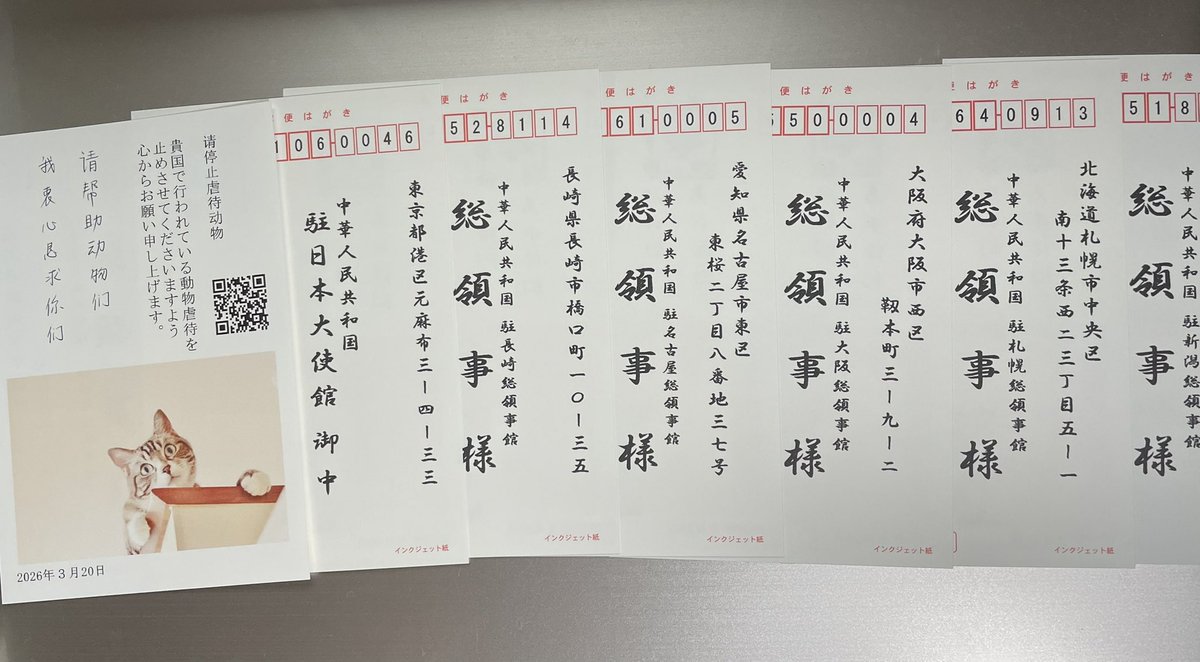 请停止虐待动物
貴国で行われている動物虐待を
止めさせてくださいますよう
心からお願い申し上げます。
请帮助动物们
我衷心恳求你们
2026年3月20日
便はがき
106-0046
東京都港区元麻布三ー四ー三三
中華人民共和国
駐日本大使館 御中
便はがき
52-8114
長崎県長崎市橋口町一〇ー三五
中華人民共和国 駐長崎総領事館
総領事様
インクジェット紙
便はがき
61-0005
愛知県名古屋市東区
東桜二丁目八番地三七号
中華人民共和国 駐名古屋総領事館
総領事様
インクジェット紙
便はがき
550-0004
大阪府大阪市西区
靱本町三ー九ー二
中華人民共和国 駐大阪総領事館
総領事様
インクジェット紙
便はがき
64-0913
北海道札幌市中央区
南十三条西二三丁目五ー一
中華人民共和国 駐札幌総領事館
総領事様
インクジェット紙
便はがき
51-8
中華人民共和国 駐新潟総領事館
総領事様
インクジェット紙